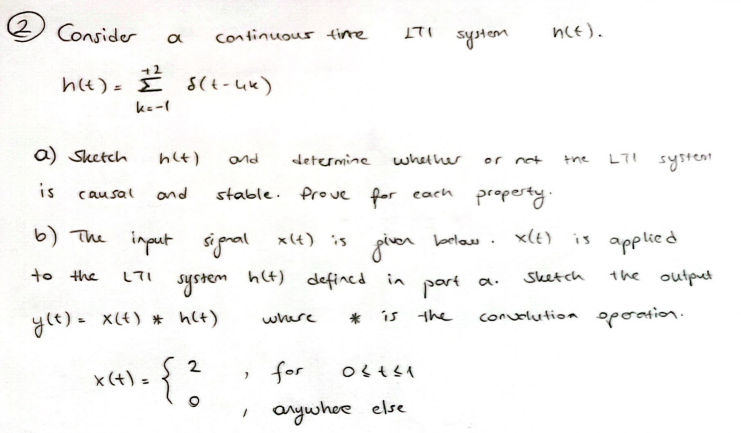 ② Consider a continuous time LTI system h(t).
h(t) = +2 Σ k=-1 δ(t-4k)
a) Sketch h(t) and determine whether or not the LTI system
is causal and stable. Prove for each property.
b) The input signal x(t) is given below. x(t) is applied
to the LTI system h(t) defined in part a. Sketch the output
y(t) = x(t) * h(t) where * is the convolution operation.
x(t) = { 2 , for 0≤t≤1
0 , anywhee else